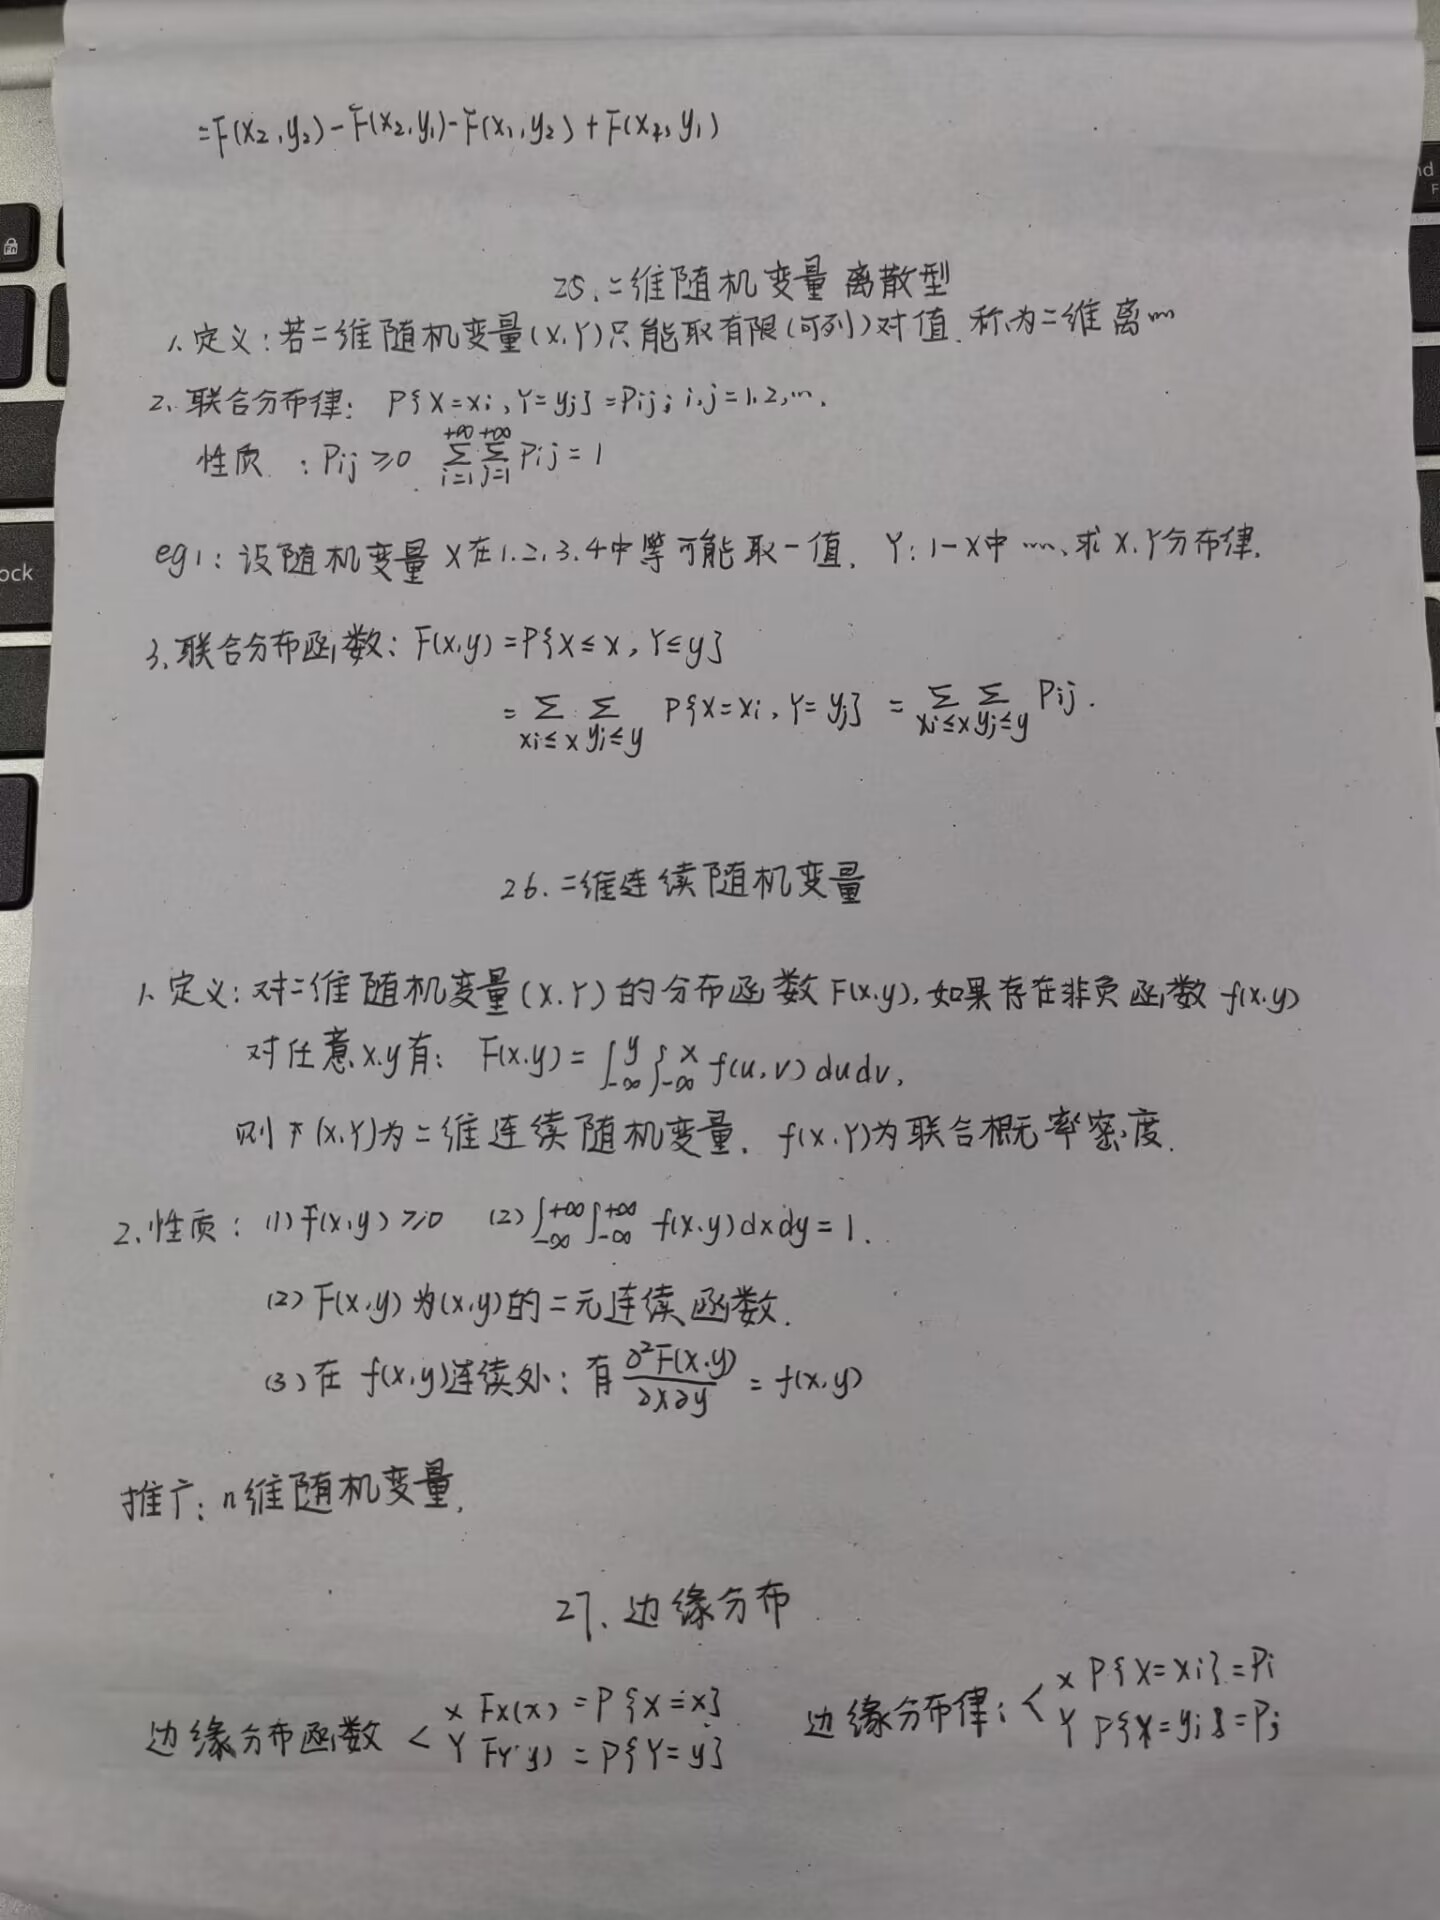 =F(x₂,y₂)-F(x₂,y₁)-F(x₁,y₂)+F(x₁,y₁)
25、二维随机变量 离散型
1、定义:若二维随机变量(X,Y)只能取有限(可列)对值.称为二维离…
2、联合分布律: P{X=xi,Y=yj}=Pij; i,j=1,2,….
性质 : Pij≥0 ∑(i=1,+∞)∑(j=1,+∞)Pij=1
eg1:设随机变量X在1.2.3.4中等可能取一值. Y:1-X中…、求X.Y分布律.
3、联合分布函数: F(x,y)=P{X≤x,Y≤y}
=∑(xi≤x)∑(yj≤y) P{X=xi,Y=yj} =∑(xi≤x)∑(yj≤y)Pij.
26.二维连续随机变量
1、定义:对二维随机变量(X.Y)的分布函数F(x.y),如果存在非负函数f(x.y)
对任意x.y有: F(x.y)=∫_{-∞}^{y}∫_{-∞}^{x} f(u,v)dudv,
则(X.Y)为二维连续随机变量. f(x.Y)为联合概率密度.
2、性质: (1)F(x,y)≥0 (2)∫_{-∞}^{+∞}∫_{-∞}^{+∞} f(x.y)dxdy=1.
(2)F(x.y)为(x.y)的二元连续函数.
(3)在 f(x,y)连续处:有∂²F(x.y)/∂x∂y=f(x,y)
推广:n维随机变量.
27、边缘分布
边缘分布函数 < X Fx(x)=P{X=x} 边缘分布律:< X P{X=xi}=Pi
Y FY(y)=P{Y=y} Y P{X=yi}=Pj
ock
Fn